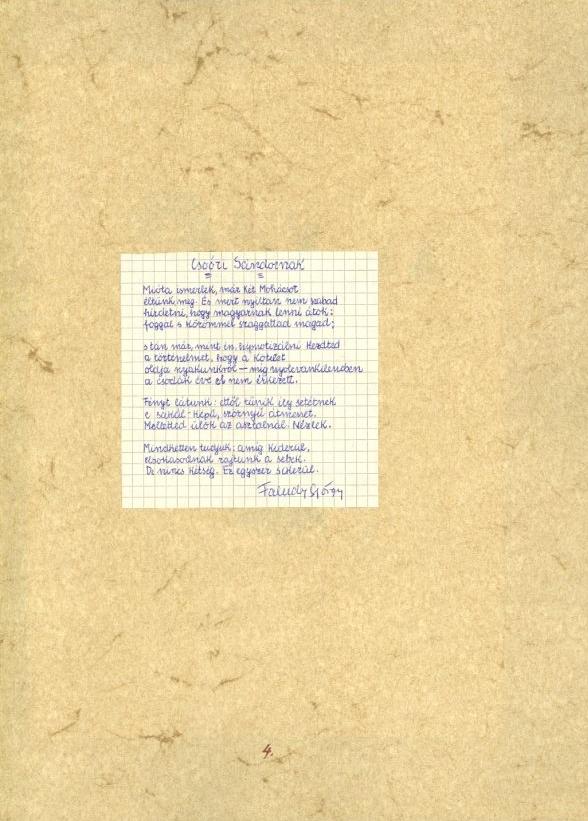 Csoóri Sándornak
Mióta ismerlek, már két Mohácsot
éltünk meg. És mert nyíltan nem szabad
hirdetni, hogy magyarnak lenni átok:
foggal s körömmel szaggattad magad;
s tán már, mint én, hypnotizálni kezdted
a történelmet, hogy a kötelet
oldja nyakunkról — míg nyolcvankilencben
a csodák éve el nem érkezett.
Fényt látunk: ettől tűnik ily setétnek
e sakál-képű, szörnyű átmenet.
Melletted ülök az asztalnál. Nézlek.
Mindketten tudjuk: amíg kiderül,
elsokasodnak rajtunk a sebek.
De nincs kétség. Ez egyszer sikerül.
Faludy György
4.